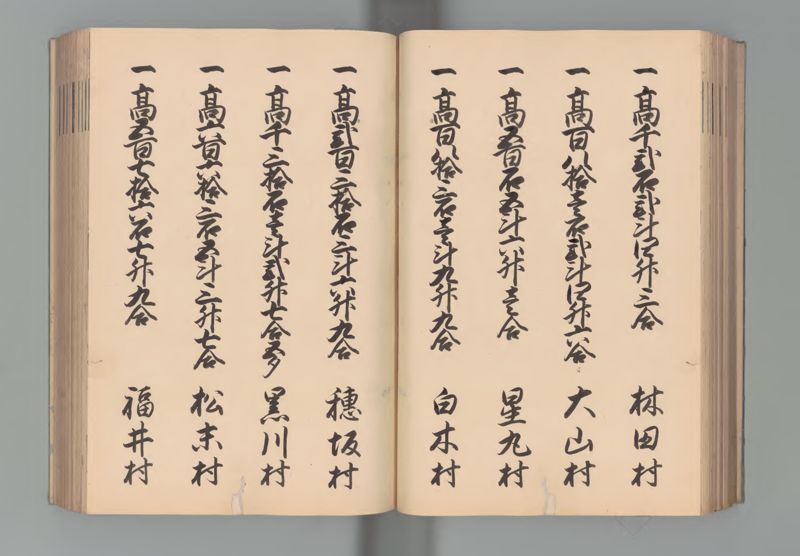 一高千弐石弐斗四升三合 林田村
一高百八拾壱石弐斗四升六合 大山村
一高五百石五斗六升壱合 星丸村
一高百八拾三石壱斗九升九合 白木村
一高弐百三拾石三斗六升九合 穂坂村
一高千三拾石壱斗弐升七合五夕 黒川村
一高六百六拾三石五斗三升七合 松末村
一高五百七拾六石七升九合 福井村